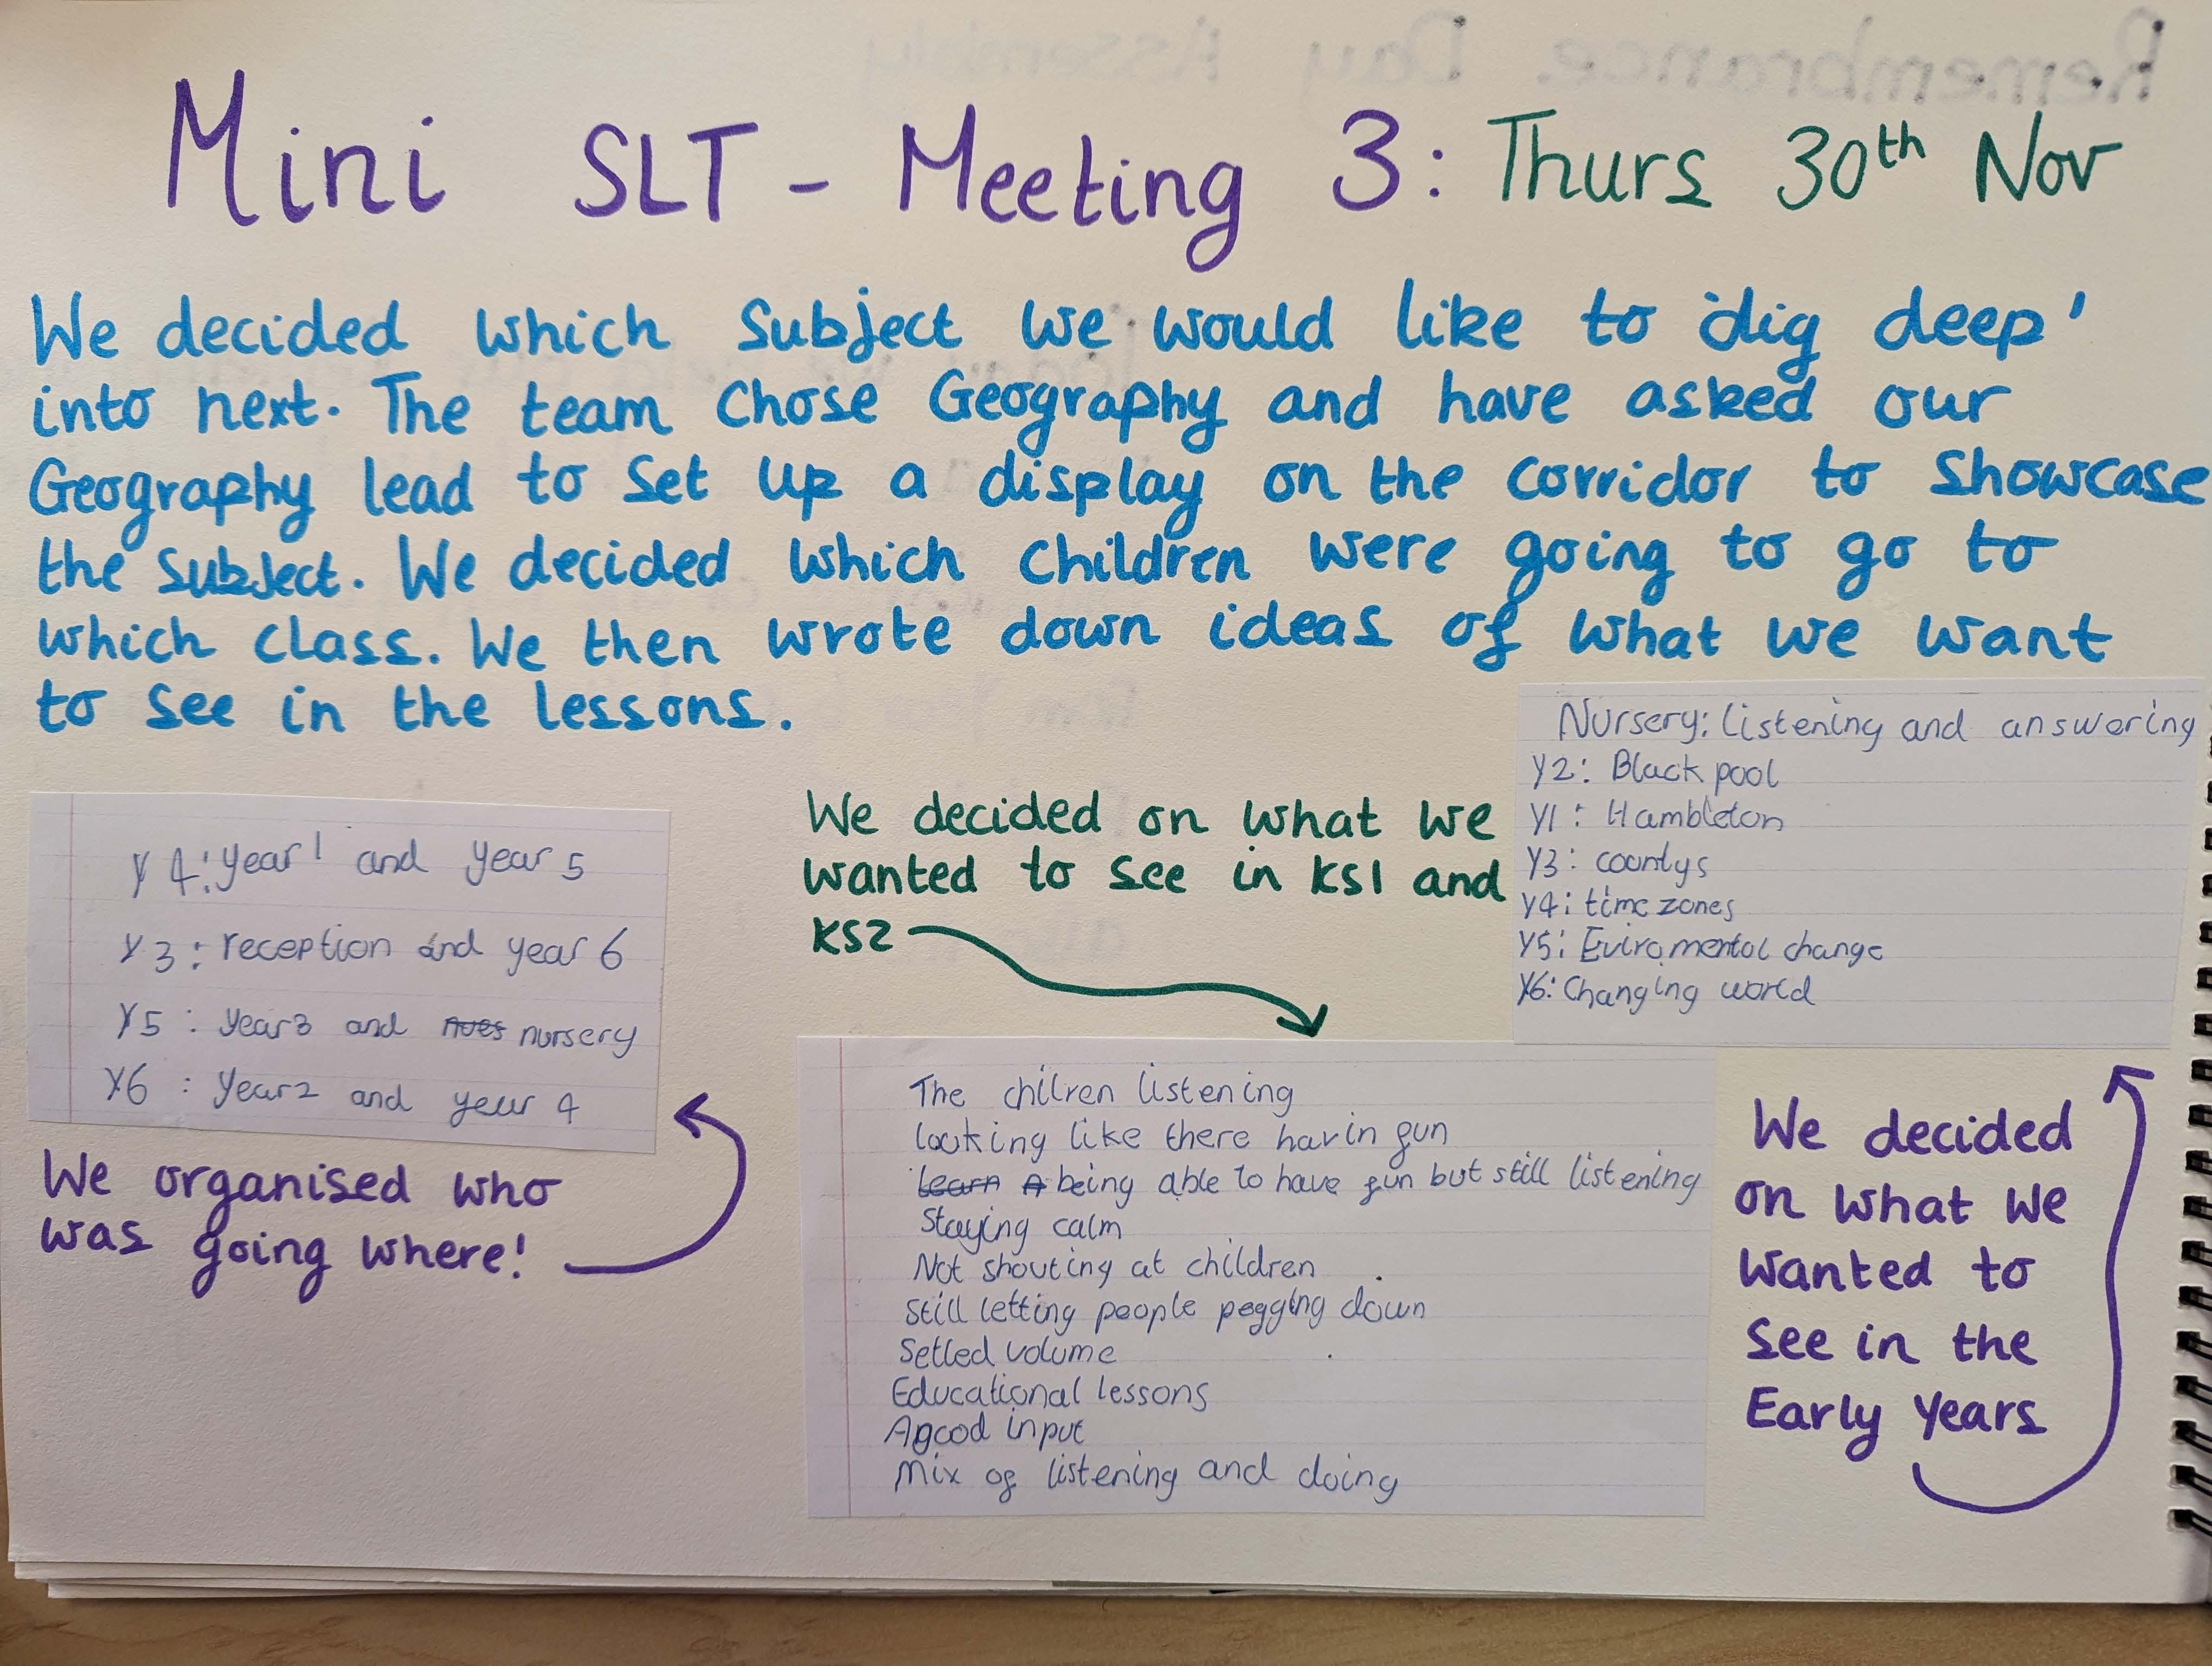 Mini SLT - Meeting 3: Thurs 30th Nov
We decided which subject we would like to 'dig deep'
into next. The team chose Geography and have asked our
Geography lead to set up a display on the corridor to showcase
the subject. We decided which children were going to go to
which class. We then wrote down ideas of what we want
to see in the lessons.
Y4: year 1 and year 5
Y3: reception and year 6
Y5: year3 and nursery
Y6: Year2 and year 4
We organised who
was going where!
We decided on what we
wanted to see in KS1 and
KS2
The chilren listening
looking like there havin fun
learn A being able to have fun but still listening
Staying calm
Not shouting at children
Still letting people pegging down
Setled volume
Educational lessons
A good input
Mix of listening and doing
Nursery: listening and answering
Y2: Blackpool
Y1: Hambleton
Y3: countys
Y4: time zones
Y5: Eviromental change
Y6: Changing world
We decided
on what we
wanted to
see in the
Early Years
Remembrance Day Assembly